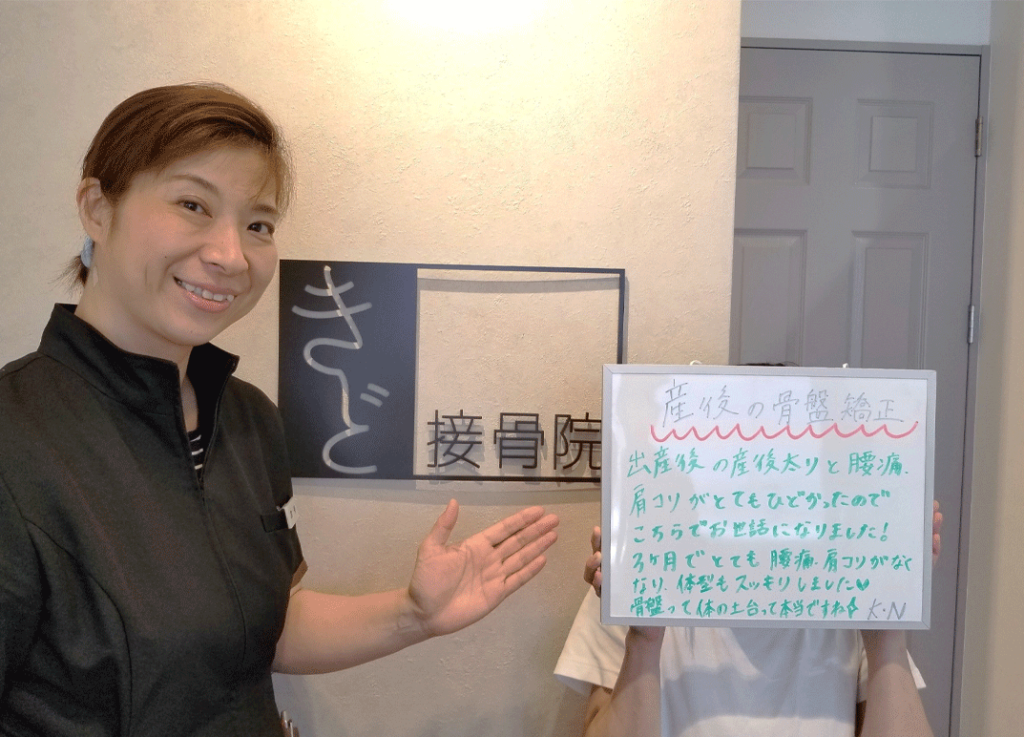 きど
接骨院
産後の骨盤矯正
出産後の産後太りと腰痛、
肩コリがとてもひどかったので
こちらでお世話になりました!
3ヶ月でとても腰痛、肩コリがなく
なり、体型もスッキリしました♥
骨盤って体の土台って本当ですね K.N